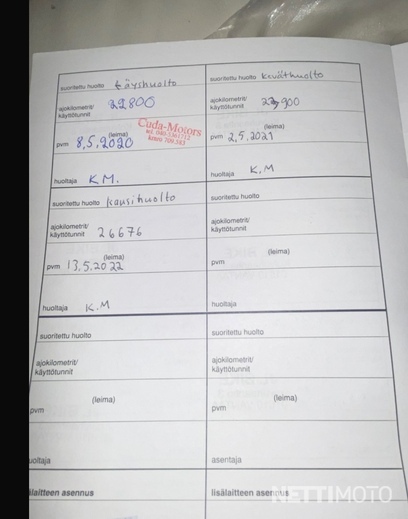 suoritettu huolto täyshuolto
ajokilometrit/
käyttötunnit 22800
(leima)
pvm 8,5,2020
Cuda-Motors
huoltaja K.M.
suoritettu huolto keväthuolto
ajokilometrit/
käyttötunnit 23900
(leima)
pvm 2,5,2021
huoltaja K.M
suoritettu huolto kausihuolto
ajokilometrit/
käyttötunnit 26676
(leima)
pvm 13,5.2022
huoltaja K.M
suoritettu huolto
ajokilometrit/
käyttötunnit
(leima)
pvm
huoltaja
suoritettu huolto
ajokilometrit/
käyttötunnit
(leima)
pvm
uoltaja
suoritettu huolto
ajokilometrit/
käyttötunnit
(leima)
pvm
asentaja
älaitteen asennus
lisälaitteen asennus
NETTIMOTO